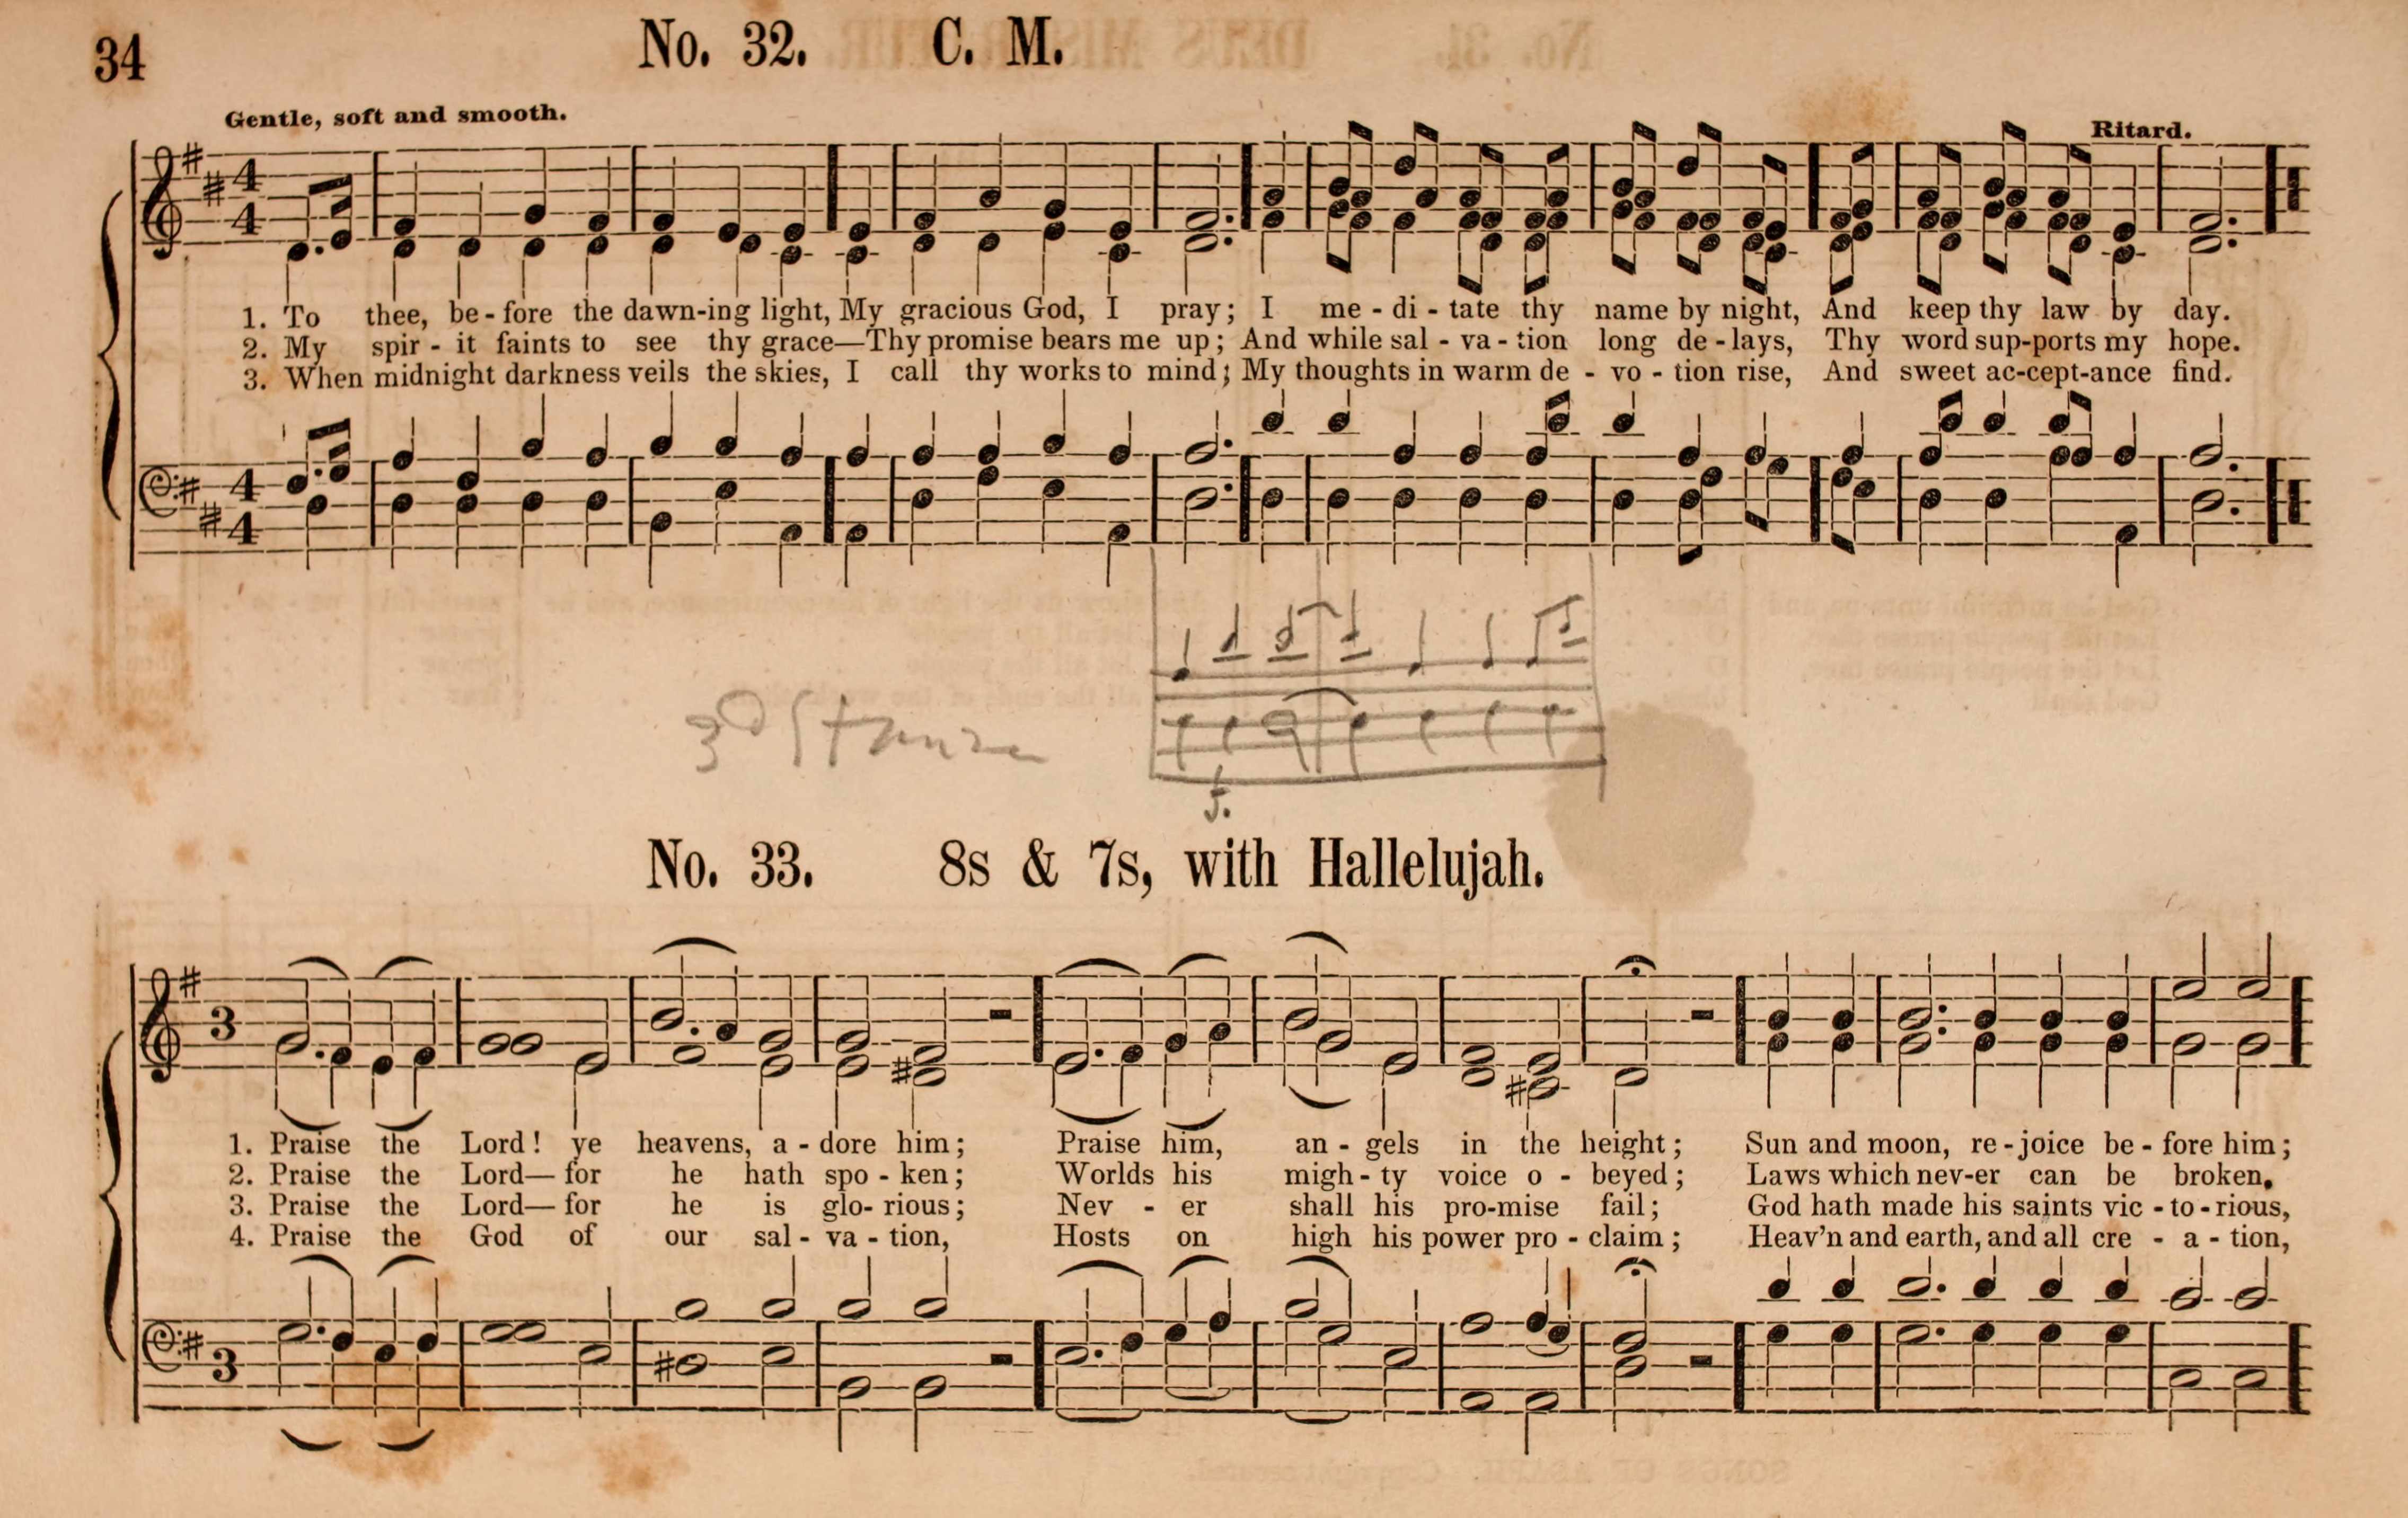 34
No. 32. C. M.
Gentle, soft and smooth.
Ritard.
4
4
1. To thee, be - fore the dawn-ing light, My gracious God, I pray; I me - di - tate thy name by night, And keep thy law by day.
2. My spir - it faints to see thy grace—Thy promise bears me up; And while sal - va - tion long de - lays, Thy word sup-ports my hope.
3. When midnight darkness veils the skies, I call thy works to mind; My thoughts in warm de - vo - tion rise, And sweet ac-cept-ance find.
4
4
3d Stanza
5.
No. 33. 8s & 7s, with Hallelujah.
3
1. Praise the Lord! ye heavens, a - dore him; Praise him, an - gels in the height; Sun and moon, re - joice be - fore him;
2. Praise the Lord— for he hath spo - ken; Worlds his migh - ty voice o - beyed; Laws which nev-er can be broken.
3. Praise the Lord— for he is glo- rious; Nev - er shall his pro-mise fail; God hath made his saints vic - to - rious,
4. Praise the God of our sal - va - tion, Hosts on high his power pro - claim; Heav'n and earth, and all cre - a - tion,
3